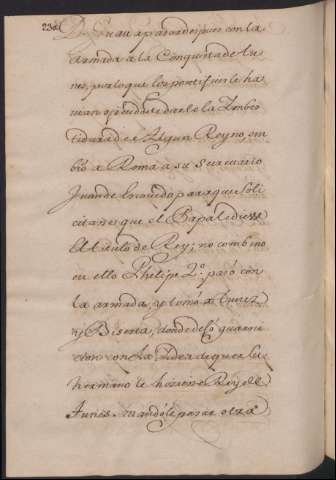 234
D. Juan a pasar despues con la
armada a la Conquista de Tu-
nes, por lo que los Pontifices le ha-
vian ofrecido darle la Imbes
tidura de Algun Reyno, em-
bió a Roma a su Secretario
Juan de Escovedo para que soli
citase que el Papa le diesse
el titulo de Rey; no combino
en ello Phelipe 2º. pasó con
la armada, y tomó a Tunez
y Biserta, donde dejó guarni
cion con la Idea de que su
hermano le hiciese Rey de
Tunes. mandóle pasar otra